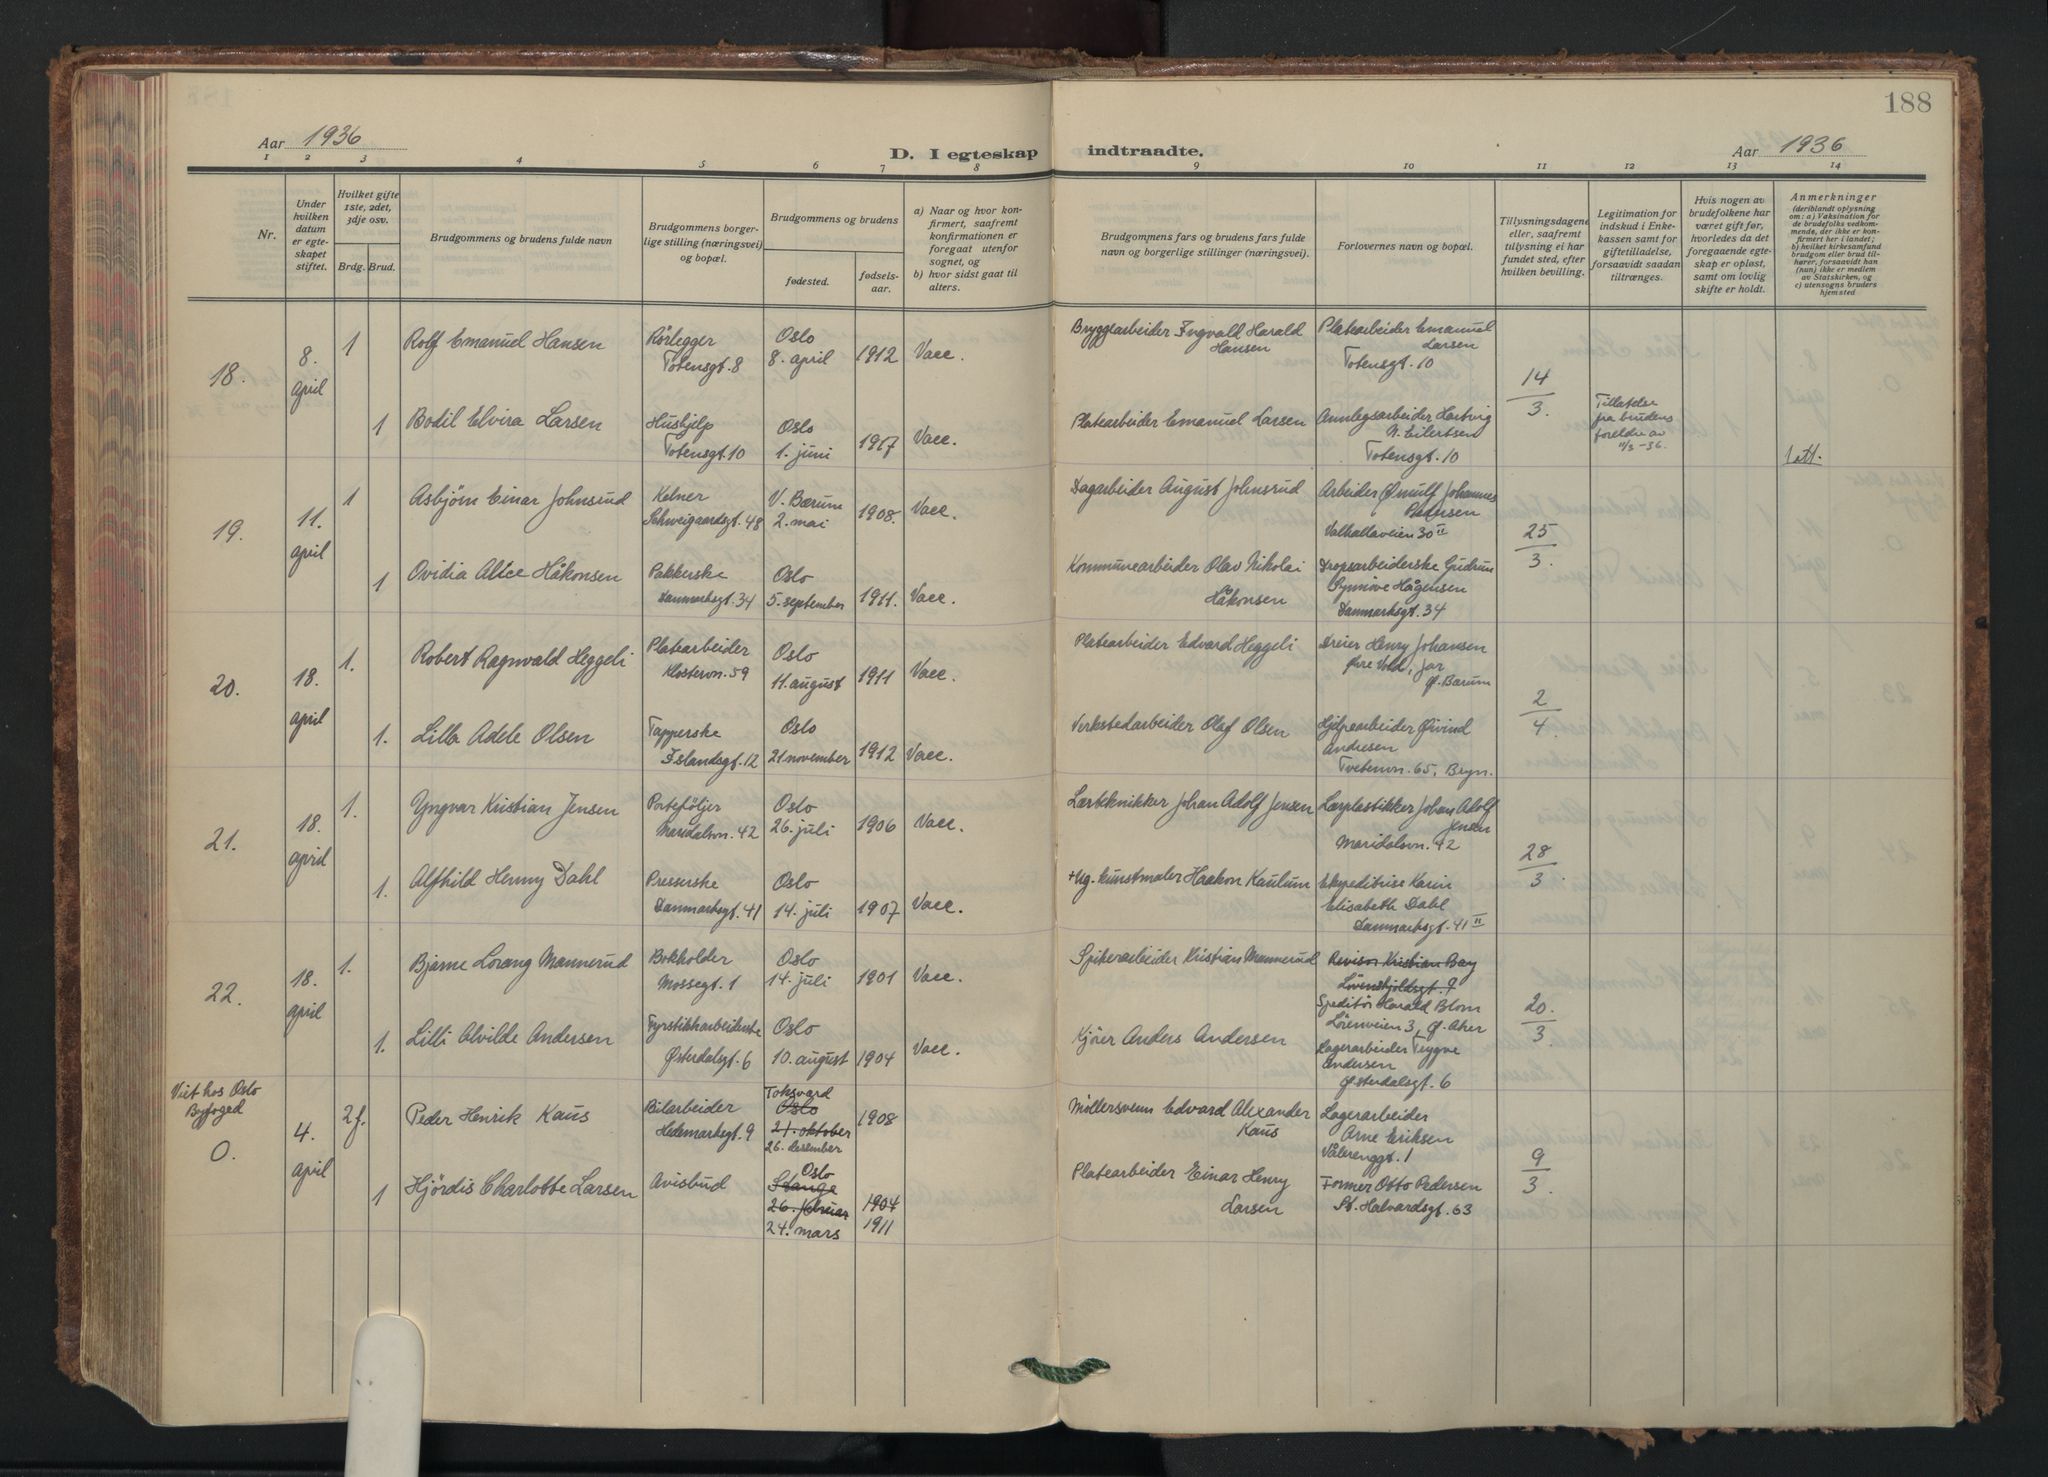 188
Aar 1936
D. I egteskap indtraadte.
Aar 1936
1 2 3 4 5 6 7 8 9 10 11 12 13 14
Nr.
Under hvilken datum er egteskapet stiftet.
Hvilket gifte 1ste, 2det, 3dje osv.
Brdg. Brud.
Brudgommens og brudens fulde navn
Brudgommens borgerlige stilling (næringsvei) og bopæl.
Brudgommens og brudens
fødested.
fødselsaar.
a) Naar og hvor konfirmert, saafremt konfirmationen er foregaat utenfor sognet, og
b) hvor sidst gaat til alters.
Brudgommens fars og brudens fars fulde navn og borgerlige stillinger (næringsvei).
Forlovernes navn og bopæl.
Tillysningsdagene eller, saafremt tillysning ei har fundet sted, efter hvilken bevilling.
Legitimation for indskud i Enkekassen samt for giftetilladelse, forsaavidt saadan tiltrænges.
Hvis nogen av brudefolkene har været gift før, hvorledes da det foregaaende egteskap er opløst, samt om lovlig skifte er holdt.
Anmerkninger (deriblandt oplysning om: a) Vaksination for de brudefolks vedkommende, der ikke er konfirmert her i landet; b) hvilket kirkesamfund brudgom eller brud tilhører, forsaavidt han (hun) ikke er medlem av Statskirken, og c) utensogns bruders hjemsted
18. 8. april
1 Rolf Emanuel Hansen Rørlegger Totensgt. 8 Oslo 8. april 1912 Vacc. Bryggearbeider Ingvald Harald Hansen Platearbeider Emanuel Larsen Totensgt. 10
14/3.
1 Bodil Elvira Larsen Hushjelp Totensgt. 10 Oslo 1. juni 1917 Vacc. Platearbeider Emanuel Larsen Annlegsarbeider Hartvig N. Eilertsen Totensgt. 10
Tillatelse fra brudens foreldre av 11/3-36.
1 att.
19. 11. april
1 Asbjørn Einar Johnsrud Kelner Schweigaardsgt. 48 V. Bærum 2. mai 1908. Vacc. Dagarbeider August Johnsrud Arbeider Ørnulf Johannes Pettersen Valhallaveien 30 II
25/3.
1 Ovidia Alice Håkonsen Pakkerske Danmarksgt. 34 Oslo 5. september 1911. Vacc. Kommunearbeider Olav Nikolai Håkonsen Dropsarbeiderske Gudrun Synnøve Hågensen Danmarksgt. 34
20. 18. april
1. Robert Ragnvald Heggeli Platearbeider Klostervn. 59 Oslo 11. august 1911 Vacc. Platearbeider Edvard Heggeli Dreier Henry Johansen Øvre Vold, Jar Ø. Bærum
2/4
1. Lilla Adele Olsen Tapperske Islandsgt. 12 Oslo 21 november 1912 Vacc. Verkstedarbeider Olaf Olsen Hjelpearbeider Øivind Andresen Tvetenvn. 65, Bryn.
21. 18. april
1. Yngvar Kristian Jensen Porteføljer Maridalsvn. 42 Oslo 26. juli 1906 Vacc. Lærtekniker Johan Adolf Jensen Lærplastikker Johan Adolf Jensen Maridalsvn. 42
28/3
1. Alfhild Henny Dahl Presserske Danmarksgt. 41 Oslo 14. juli 1907 Vacc. + Ug. kunstmaler Haakon Kaulum Ekspeditrise Karin Elisabeth Dahl Danmarksgt. 41 II
22. 18. april
1. Bjarne Lorang Mannerud Bokholder Mossegt. 1 Oslo 14. juli 1901 Vacc. Spikerarbeider Kristian Mannerud Revisor Kristian Bay Løvenskjoldsgt. 9 Speditør Harald Blom Lørenveien 3, Ø. Aker
20./3
1. Lilli Alvilde Andersen Fyrstikkarbeiderske Østerdalsgt. 6 Oslo 10. august 1904 Vacc. Kjører Anders Andersen Lagerarbeider Trygve Andersen Østerdalsgt. 6
Viet hos Oslo Byfoged
0. 4. april
2 f. Peder Henrik Kaus Bilarbeider Hedemarksgt. 9 Toksvard Oslo 21. oktober 26. desember 1908 Møllersvenn Edvard Alexander Kaus Lagerarbeider Arne Eriksen Vålerenggt. 1
9/3.
1 Hjördis Charlotte Larsen Avisbud Oslo Stange 26. februar 24. mars 1904 1911 Platearbeider Einar Henry Larsen Former Otto Pedersen St. Halvardsgt. 63